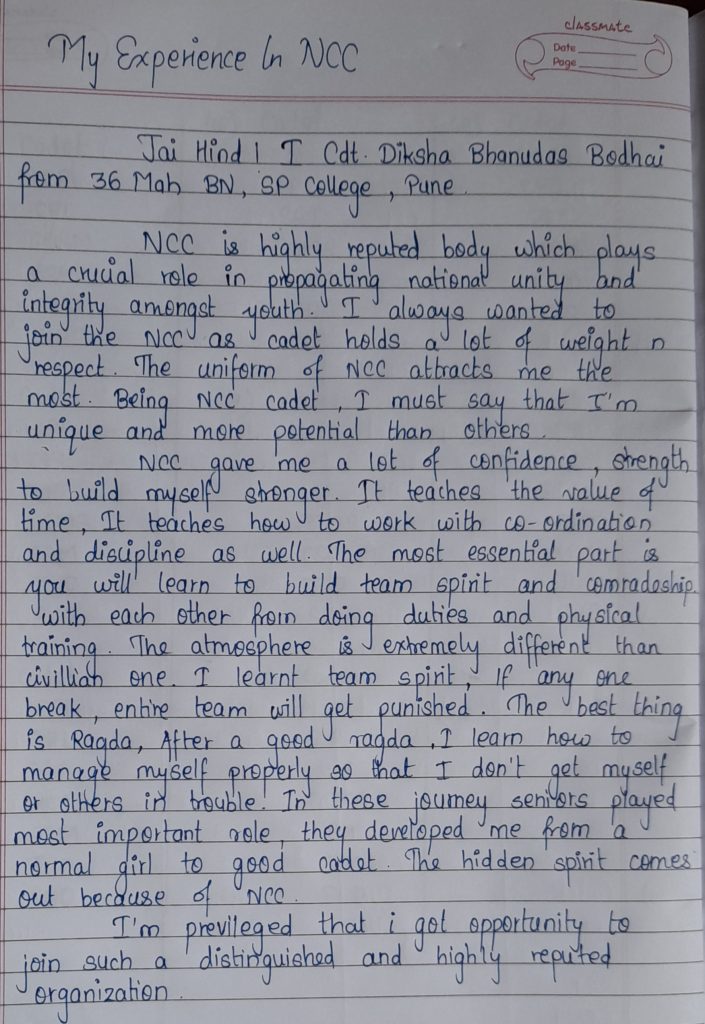 classmate
Date
Page
My Experience In NCC
Jai Hind ! I Cdt. Diksha Bhanudas Bodhai
from 36 Mah BN, SP College , Pune.
NCC is highly reputed body which plays
a crucial role in propagating national unity and
integrity amongst youth. I always wanted to
join the NCC as cadet holds a lot of weight n
respect. The uniform of NCC attracts me the
most. Being NCC cadet , I must say that I'm
unique and more potential than others .
NCC gave me a lot of confidence , strength
to build myself stronger. It teaches the value of
time , It teaches how to work with co-ordination
and discipline as well. The most essential part is
you will learn to build team spirit and comradoship.
with each other from doing duties and physical
training . The atmosphere is extremely different than
civillian one. I learnt team spirit , If any one
break , entire team will get punished . The best thing
is Ragda, After a good ragda , I learn how to
manage myself properly so that I don't get myself
or others in trouble. In these journey seniors played
most important role, they developed me from a
normal girl to good cadet. The hidden spirit comes
out because of NCC.
I'm previleged that i got opportunity to
join such a distinguished and highly reputed
organization .